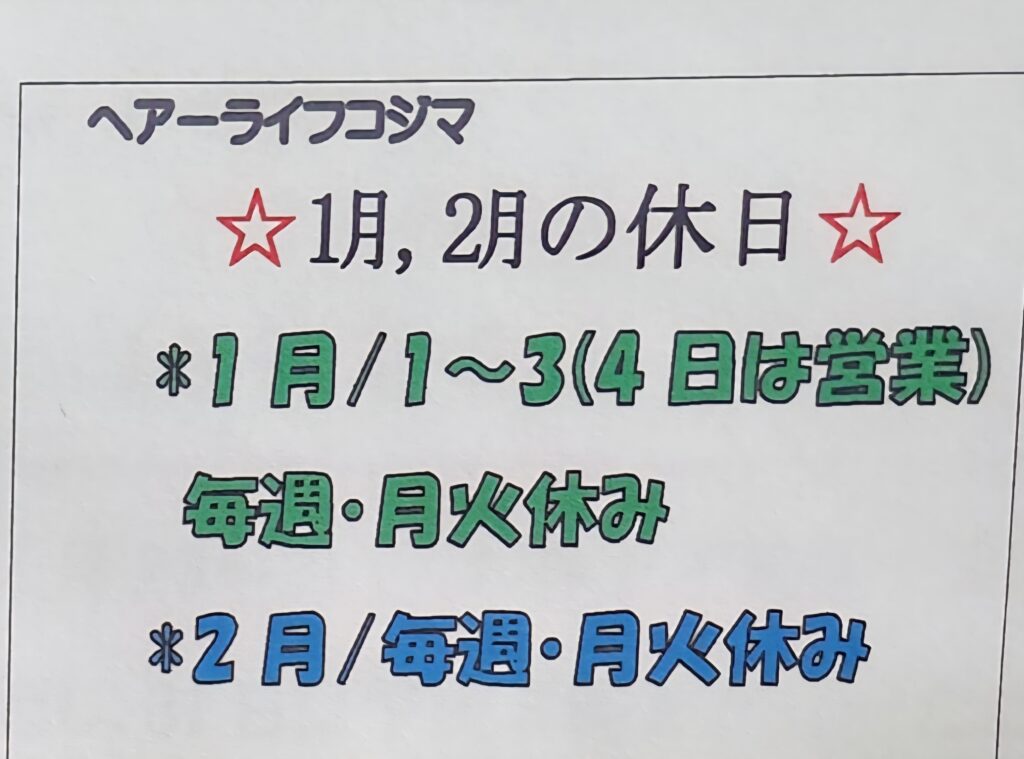 ヘアーライフコジマ
☆1月,2月の休日☆
*1月/1~3(4日は営業)
毎週・月火休み
*2月/毎週・月火休み